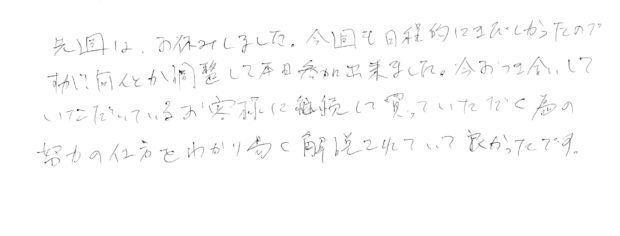 先週は、お休みしました。今回も日程的にきびしかったので
すが何とか調整して本日参加出来ました。今おつき合いして
いただいているお客様に継続して買っていただく為の
努力の仕方をわかり易く解説されていて良かったです。